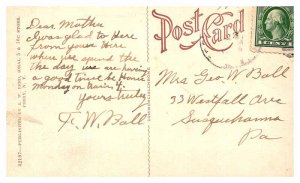 Dear Mother
I was glad to Hear
from you. Here
where we spend the
the day we are having
a good time be Home
Monday on train 4.
Yours truly
F. W. Ball
Post Card
Mrs Geo. W Ball
33 Westfall Ave
Susquehanna
Pa